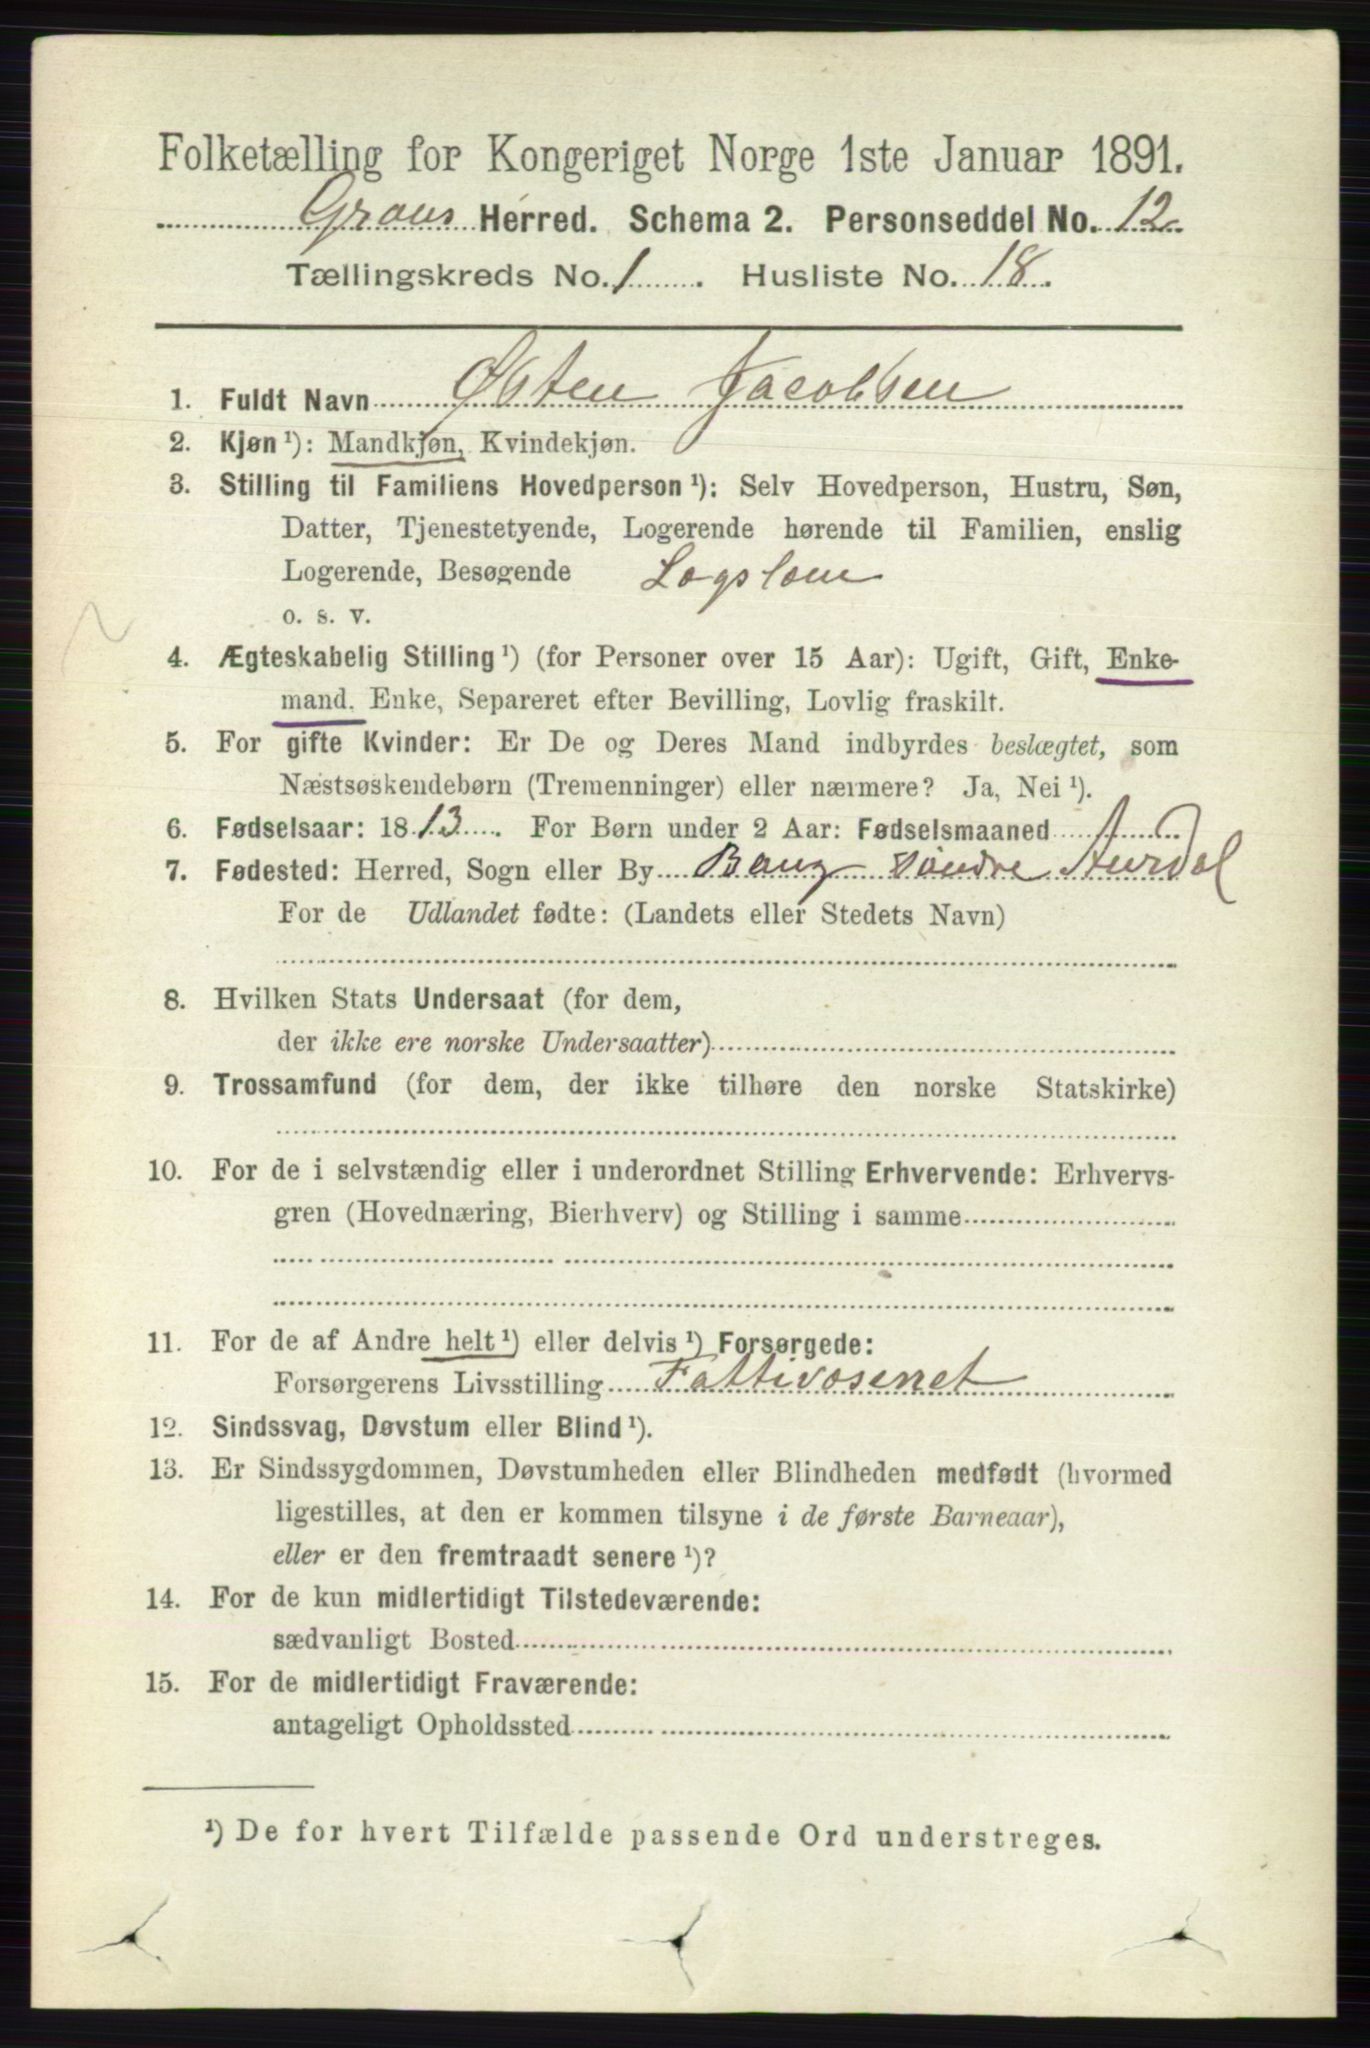 Folketælling for Kongeriget Norge 1ste Januar 1891.
Grans Herred. Schema 2. Personseddel No. 12
Tællingskreds No. 1. Husliste No. 18.
1. Fuldt Navn Østen Jacobsen
2. Kjøn ¹): Mandkjøn, Kvindekjøn.
3. Stilling til Familiens Hovedperson ¹): Selv Hovedperson, Hustru, Søn,
Datter, Tjenestetyende, Logerende hørende til Familien, enslig
Logerende, Besøgende Lægslem
o. s. v.
4. Ægteskabelig Stilling ¹) (for Personer over 15 Aar): Ugift, Gift, Enke-
mand, Enke, Separeret efter Bevilling, Lovlig fraskilt.
5. For gifte Kvinder: Er De og Deres Mand indbyrdes beslægtet, som
Næstsøskendebørn (Tremenninger) eller nærmere? Ja, Nei ¹).
6. Fødselsaar: 1813. For Børn under 2 Aar: Fødselsmaaned
7. Fødested: Herred, Sogn eller By Bang Søndre Aurdal
For de Udlandet fødte: (Landets eller Stedets Navn)
8. Hvilken Stats Undersaat (for dem,
der ikke ere norske Undersaatter)
9. Trossamfund (for dem, der ikke tilhøre den norske Statskirke)
10. For de i selvstændig eller i underordnet Stilling Erhvervende: Erhvervs-
gren (Hovednæring, Bierhverv) og Stilling i samme
11. For de af Andre helt ¹) eller delvis ¹) Forsørgede:
Forsørgerens Livsstilling Fattivæsenet
12. Sindssvag, Døvstum eller Blind ¹).
13. Er Sindssygdommen, Døvstumheden eller Blindheden medfødt (hvormed
ligestilles, at den er kommen tilsyne i de første Barneaar),
eller er den fremtraadt senere ¹)?
14. For de kun midlertidigt Tilstedeværende:
sædvanligt Bosted
15. For de midlertidigt Fraværende:
antageligt Opholdssted
¹) De for hvert Tilfælde passende Ord understreges.